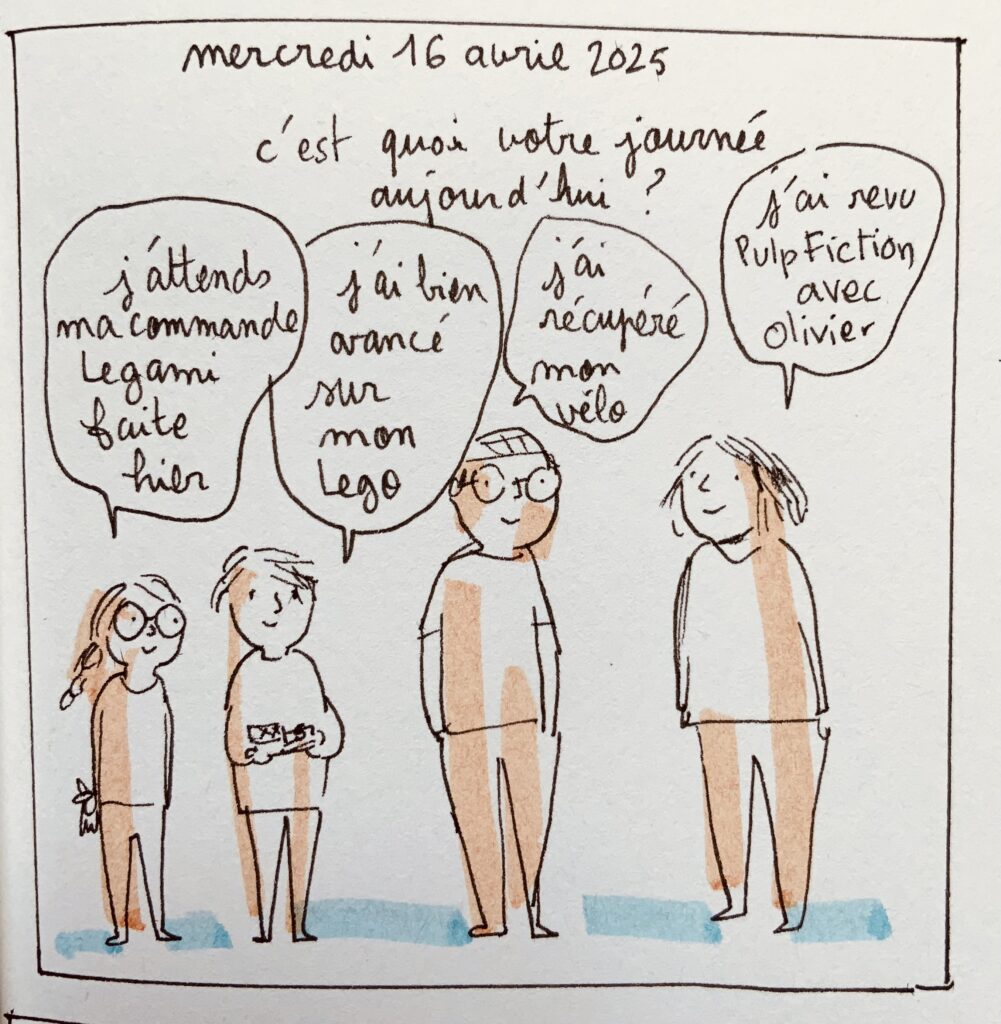 mercredi 16 avril 2025
c'est quoi votre journée
aujourd'hui ?
j'attends
ma commande
Legami
faite
hier
j'ai bien
avancé
sur
mon
Lego
j'ai
récupéré
mon
vélo
j'ai revu
Pulp Fiction
avec
Olivier